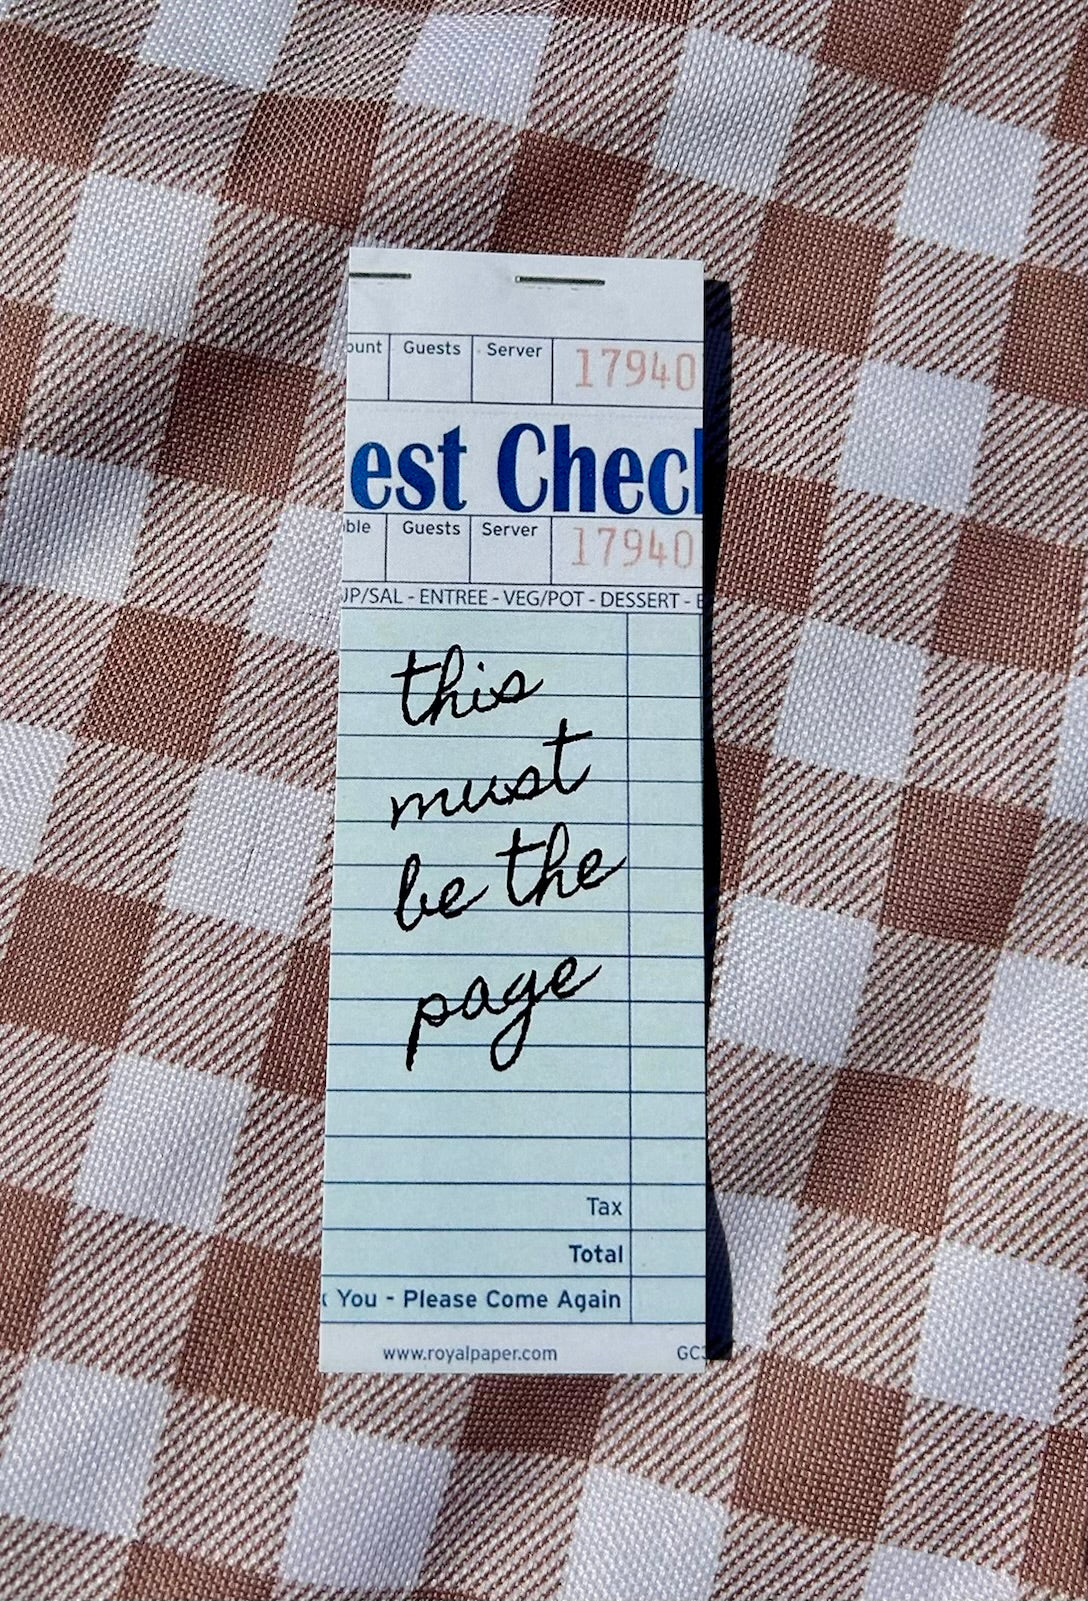 ount Guests Server 17940
est Chec
ble Guests Server 17940
UP/SAL - ENTREE - VEG/POT - DESSERT -
this
must
be the
page
Tax
Total
You - Please Come Again
www.royalpaper.com GC3